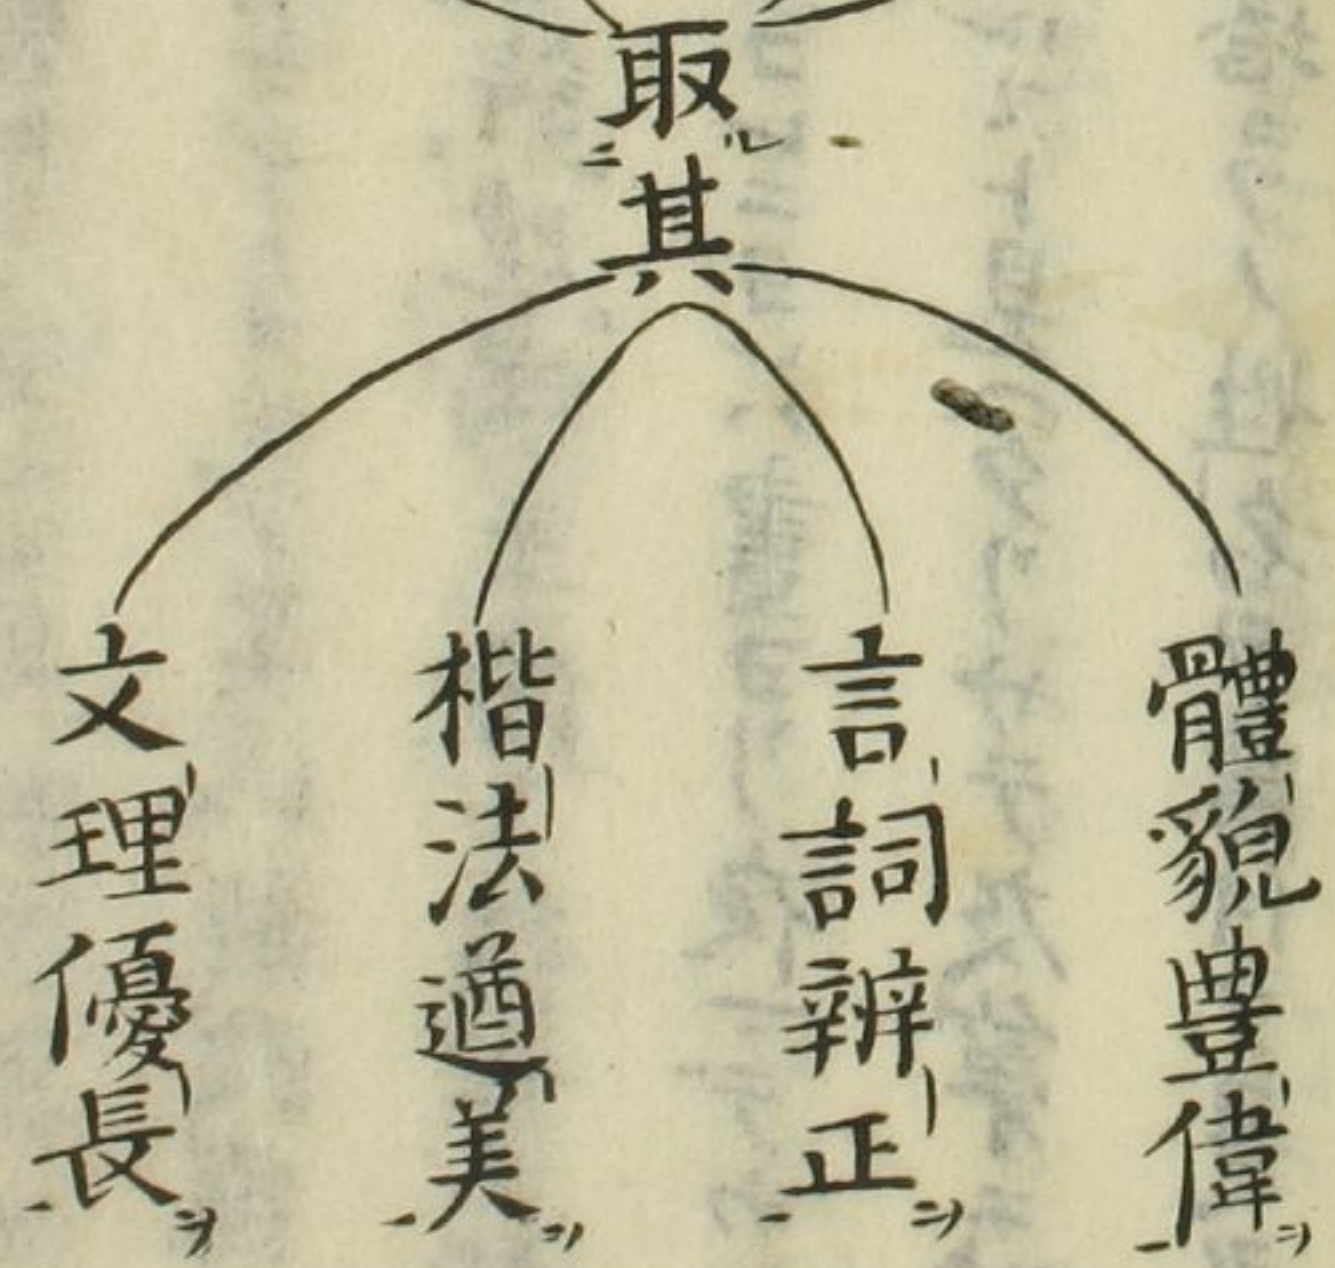 取其
體貌豊偉
言詞辨正
楷法遒美
文理優長